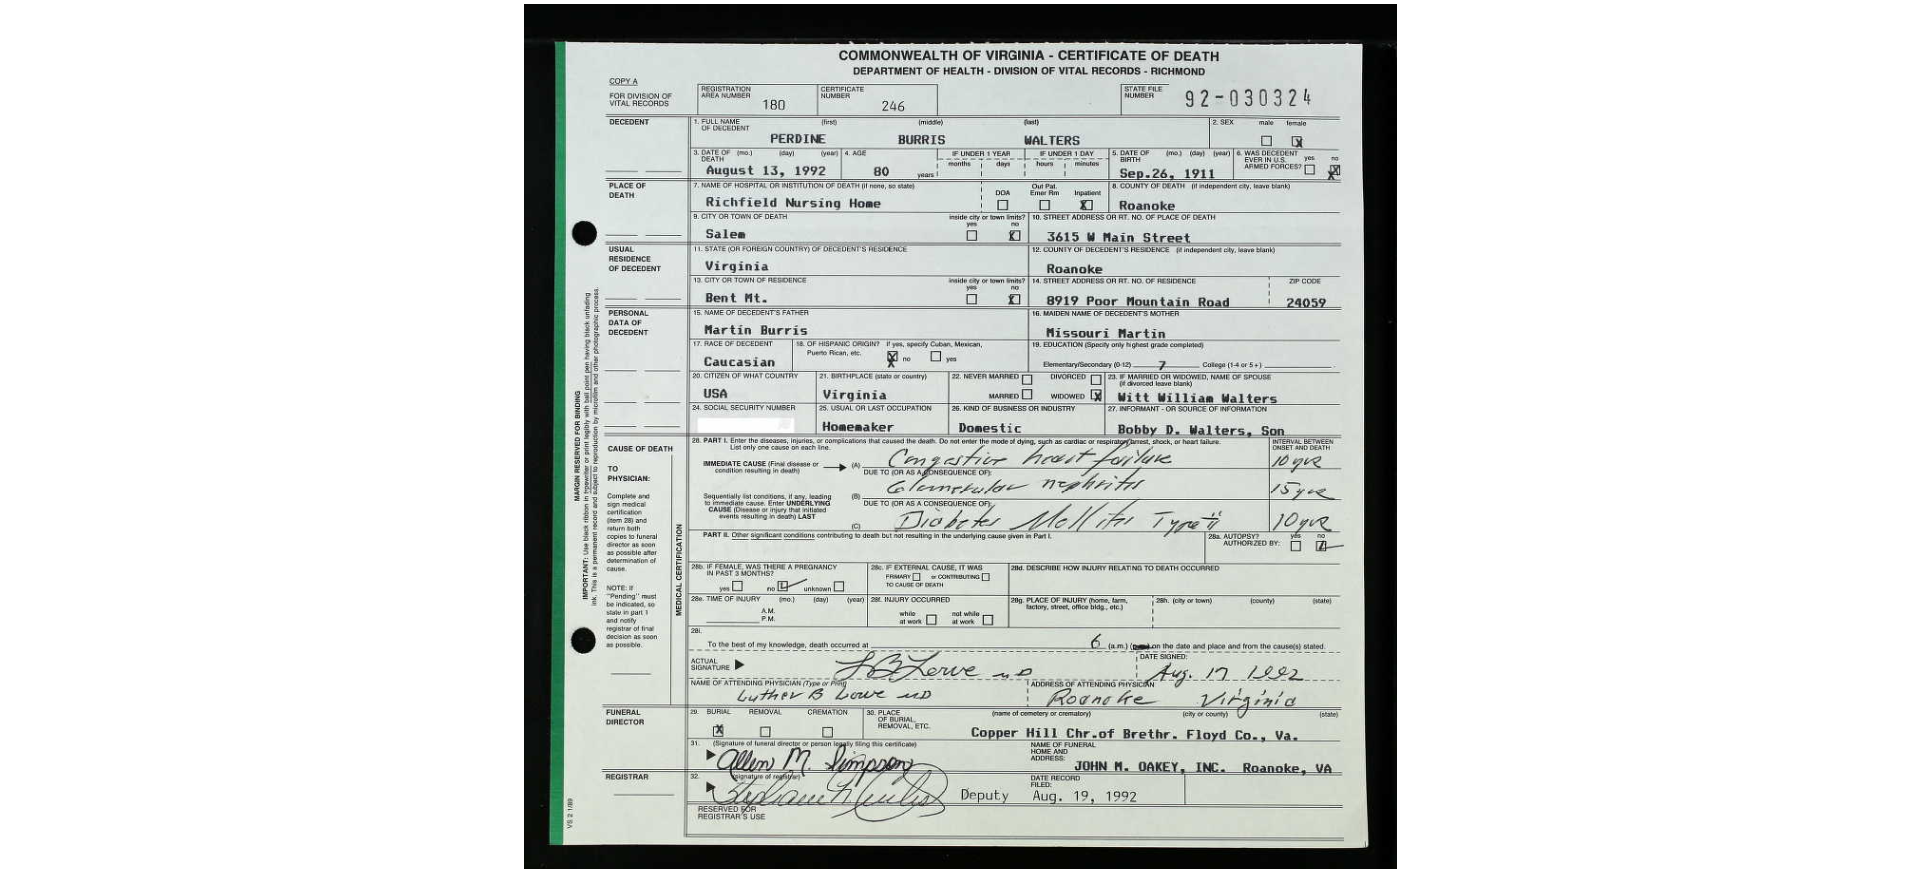 COMMONWEALTH OF VIRGINIA - CERTIFICATE OF DEATH
DEPARTMENT OF HEALTH - DIVISION OF VITAL RECORDS - RICHMOND
COPY A
FOR DIVISION OF VITAL RECORDS
REGISTRATION AREA NUMBER 180
CERTIFICATE NUMBER 246
STATE FILE NUMBER 92-030324
DECEDENT
1. FULL NAME OF DECEDENT (first) (middle) (last)
PERDINE BURRIS WALTERS
2. SEX male female X
3. DATE OF DEATH (mo.) (day) (year)
August 13, 1992
4. AGE 80 years
IF UNDER 1 YEAR months days
IF UNDER 1 DAY hours minutes
5. DATE OF BIRTH (mo.) (day) (year)
Sep.26, 1911
6. WAS DECEDENT EVER IN U.S. ARMED FORCES? yes no X
PLACE OF DEATH
7. NAME OF HOSPITAL OR INSTITUTION OF DEATH (if none, so state)
Richfield Nursing Home
DOA Out Pat. Emer Rm Inpatient X
8. COUNTY OF DEATH (if independent city, leave blank)
Roanoke
9. CITY OR TOWN OF DEATH
Salem
inside city or town limits? yes no X
10. STREET ADDRESS OR RT. NO. OF PLACE OF DEATH
3615 W Main Street
USUAL RESIDENCE OF DECEDENT
11. STATE (OR FOREIGN COUNTRY) OF DECEDENT'S RESIDENCE
Virginia
12. COUNTY OF DECEDENT'S RESIDENCE (if independent city, leave blank)
Roanoke
13. CITY OR TOWN OF RESIDENCE
Bent Mt.
inside city or town limits? yes no X
14. STREET ADDRESS OR RT. NO. OF RESIDENCE ZIP CODE
8919 Poor Mountain Road 24059
PERSONAL DATA OF DECEDENT
15. NAME OF DECEDENT'S FATHER
Martin Burris
16. MAIDEN NAME OF DECEDENT'S MOTHER
Missouri Martin
17. RACE OF DECEDENT
Caucasian
18. OF HISPANIC ORIGIN? If yes, specify Cuban, Mexican, Puerto Rican, etc.
X no yes
19. EDUCATION (Specify only highest grade completed)
Elementary/Secondary (0-12) 7 College (1-4 or 5+)
20. CITIZEN OF WHAT COUNTRY
USA
21. BIRTHPLACE (state or country)
Virginia
22. NEVER MARRIED DIVORCED
MARRIED WIDOWED X
23. IF MARRIED OR WIDOWED, NAME OF SPOUSE (if divorced leave blank)
Witt William Walters
24. SOCIAL SECURITY NUMBER
25. USUAL OR LAST OCCUPATION
Homemaker
26. KIND OF BUSINESS OR INDUSTRY
Domestic
27. INFORMANT - OR SOURCE OF INFORMATION
Bobby D. Walters, Son
CAUSE OF DEATH
TO PHYSICIAN:
Complete and sign medical certification (item 28) and return both copies to funeral director as soon as possible after determination of cause.
NOTE: If "Pending" must be indicated, so state in part 1 and notify registrar of final decision as soon as possible.
MEDICAL CERTIFICATION
28. PART I. Enter the diseases, injuries, or complications that caused the death. Do not enter the mode of dying, such as cardiac or respiratory arrest, shock, or heart failure.
List only one cause on each line.
INTERVAL BETWEEN ONSET AND DEATH
IMMEDIATE CAUSE (Final disease or condition resulting in death) (A) Congestive heart failure 10 yrs
DUE TO (OR AS A CONSEQUENCE OF):
Sequentially list conditions, if any, leading to immediate cause. Enter UNDERLYING CAUSE (Disease or injury that initiated events resulting in death) LAST
(B) Glomerular nephritis 15 yrs
DUE TO (OR AS A CONSEQUENCE OF):
(C) Diabetes Mellitus Type II 10 yrs
PART II. Other significant conditions contributing to death but not resulting in the underlying cause given in Part I.
28a. AUTOPSY? AUTHORIZED BY: yes no
28b. IF FEMALE, WAS THERE A PREGNANCY IN PAST 3 MONTHS?
yes no unknown
28c. IF EXTERNAL CAUSE, IT WAS
PRIMARY or CONTRIBUTING
TO CAUSE OF DEATH
28d. DESCRIBE HOW INJURY RELATING TO DEATH OCCURRED
28e. TIME OF INJURY (mo.) (day) (year)
A.M.
P.M.
28f. INJURY OCCURRED
while at work not while at work
28g. PLACE OF INJURY (home, farm, factory, street, office bldg., etc.)
28h. (city or town) (county) (state)
28i.
To the best of my knowledge, death occurred at 6 (a.m.) on the date and place and from the cause(s) stated.
ACTUAL SIGNATURE L B Lowe MD
DATE SIGNED: Aug. 17 1992
NAME OF ATTENDING PHYSICIAN (Type or Print)
Luther B Lowe MD
ADDRESS OF ATTENDING PHYSICIAN
Roanoke Virginia
FUNERAL DIRECTOR
29. BURIAL REMOVAL CREMATION
X
30. PLACE OF BURIAL, REMOVAL, ETC. (name of cemetery or crematory) (city or county) (state)
Copper Hill Chr.of Brethr. Floyd Co., Va.
31. (Signature of funeral director or person legally filing this certificate)
Allen M. Simpson
NAME OF FUNERAL HOME AND ADDRESS:
JOHN M. OAKEY, INC. Roanoke, VA
REGISTRAR
32. (signature of registrar)
Deputy
DATE RECORD FILED:
Aug. 19, 1992
RESERVED FOR REGISTRAR'S USE
VS 2 1/89
MARGIN RESERVED FOR BINDING
IMPORTANT: Use black ribbon in typewriter or print legibly with ball point pen having black unfading
ink. This is a permanent record and subject to reproduction by microfilm and other photographic process.